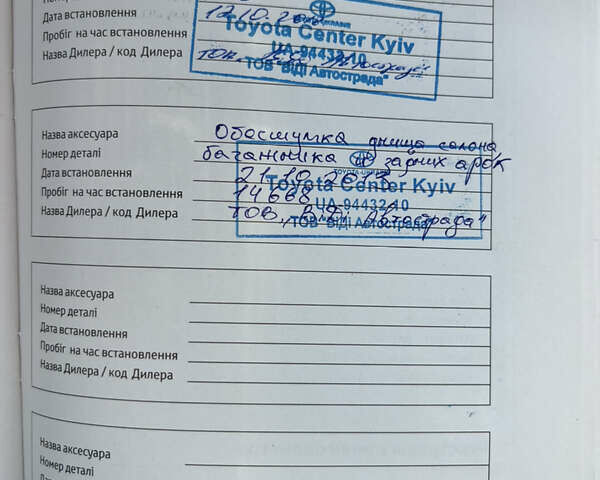 Дата встановлення 12.10.
Пробіг на час встановлення
Назва Дилера / код Дилера
TOYOTA-UKRAINE
Toyota Center Kyiv
UA-94432-10
ТОВ "ВІДІ Автострада"
Назва аксесуара Обесшумка днища салона,
Номер деталі багажника і задних арок
Дата встановлення 21.10.2013
Пробіг на час встановлення 14668
Назва Дилера / код Дилера ТОВ „ВіДі Автострада"
TOYOTA-UKRAINE
Toyota Center Kyiv
UA-94432-10
ТОВ "ВІДІ Автострада"
Назва аксесуара
Номер деталі
Дата встановлення
Пробіг на час встановлення
Назва Дилера / код Дилера
Назва аксесуара
Номер деталі